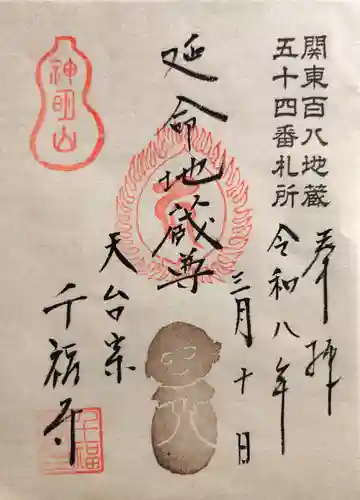 関東百八地蔵
五十四番札所
奉拝
令和八年
三月十日
延命地蔵尊
天台宗
千福寺
神明山
千福